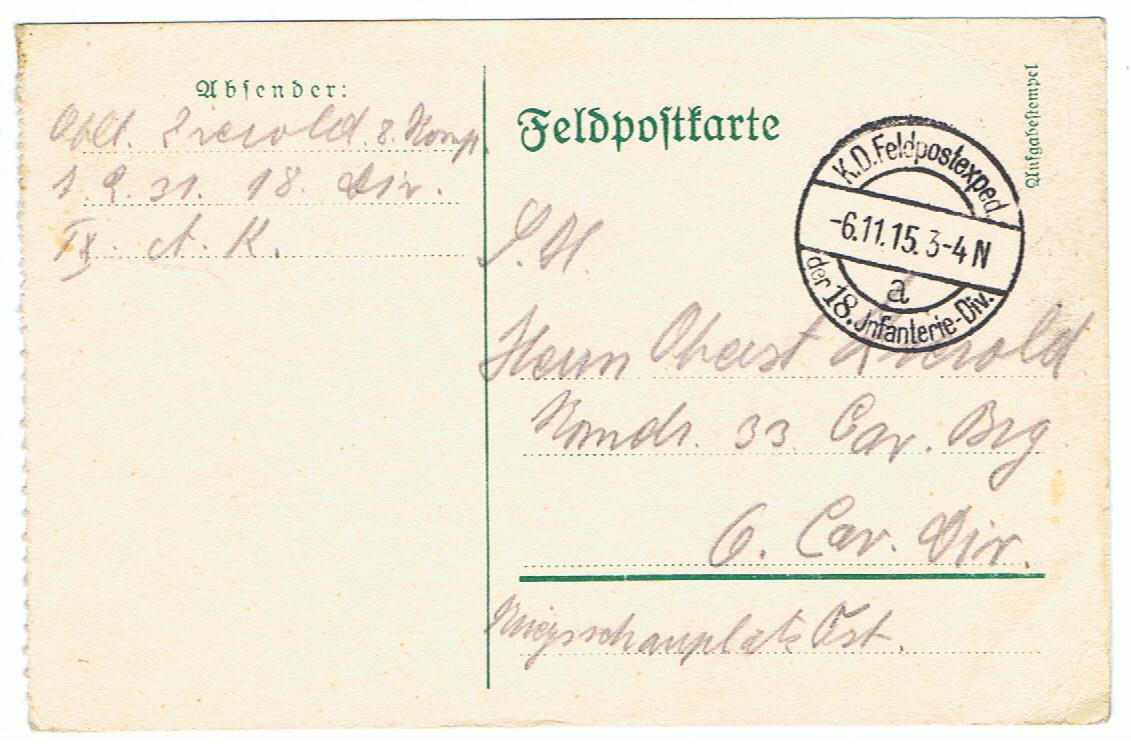 Absender:
Oblt. Zierold 8. Komp
I. R. 31. 18. Div.
IX. A. K.
Feldpostkarte
Aufgabestempel
K.D.Feldpostexped.
-6.11.15.3-4N
a
der 18.Infanterie-Div.
S. H.
Herrn Oberst Zierold
Komdr. 33 Cav. Brg
6. Cav. Div.
Kriegsschauplatz Ost.